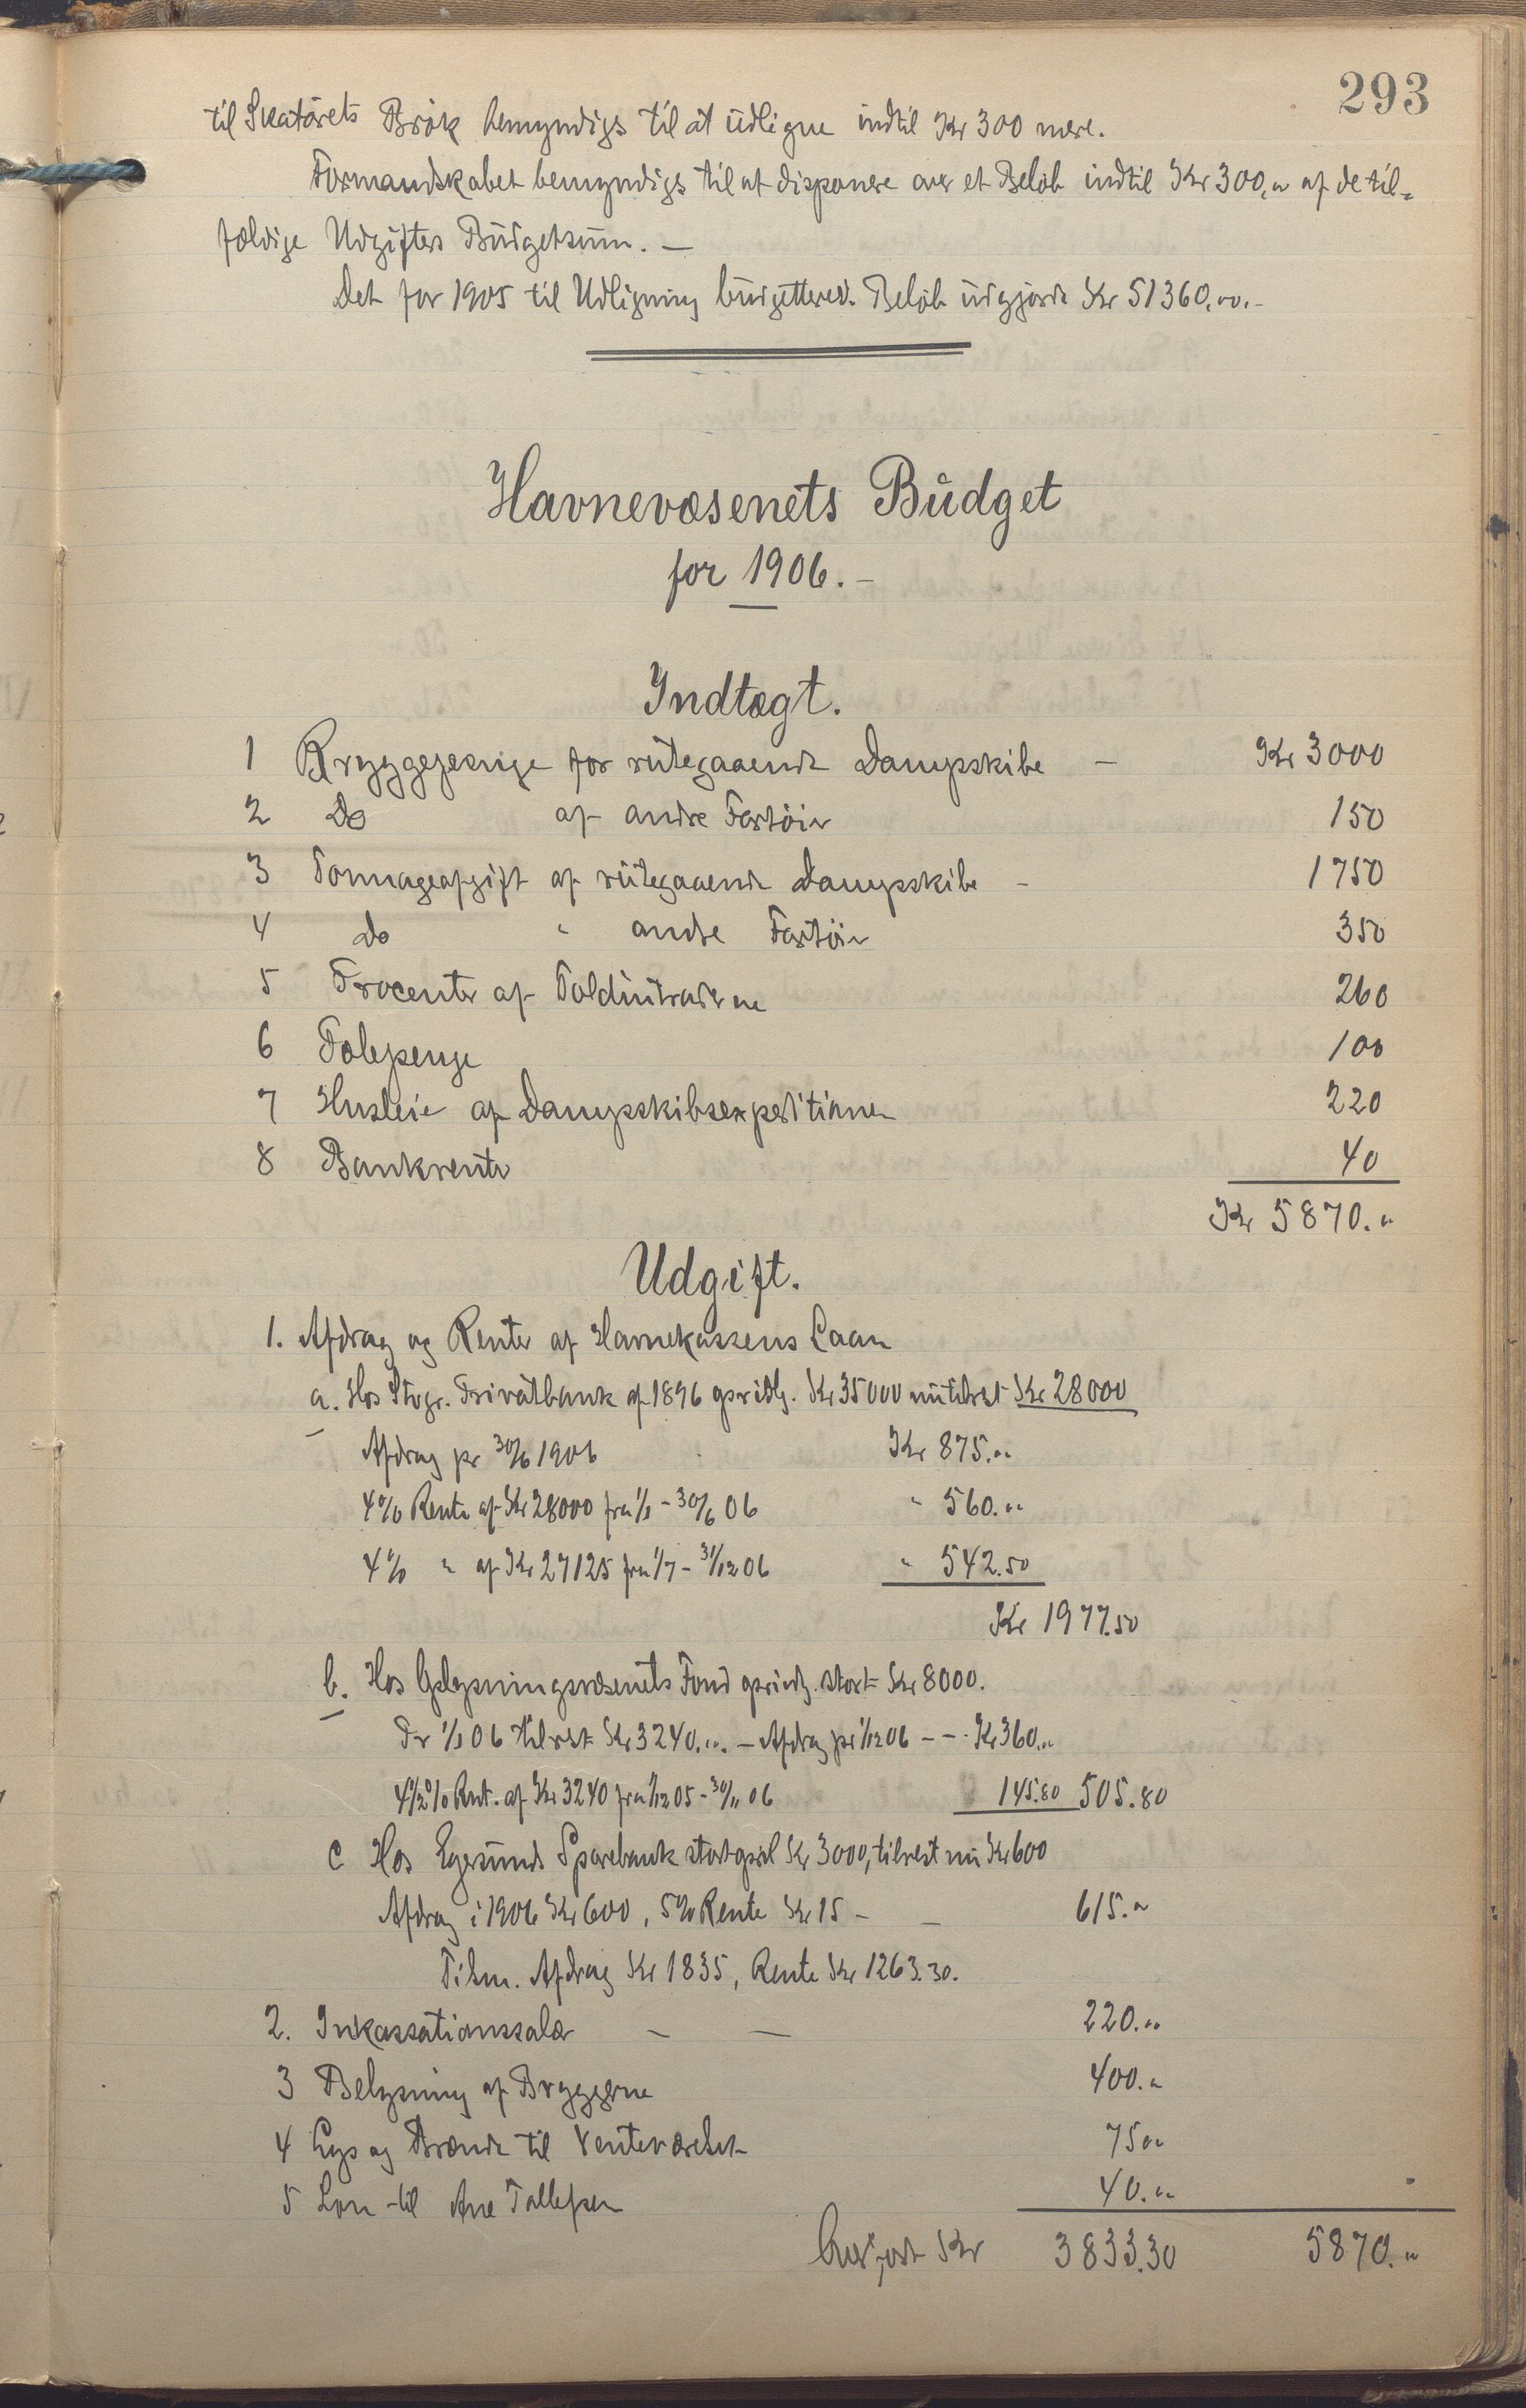 293
til Skatørets Brøk bemyndiges til at udligne indtil Kr 300 mere.
Formandskabet bemyndiges til at disponere over et Beløb indtil Kr 300,„ af de til-
fældige Udgifters Budgetsum. —
Det for 1905 til Udligning budgetterede Beløb udgjorde Kr 51360.00.-
Havnevæsenets Budget
for 1906.-
Indtægt.
1 Bryggepenge for rutegaaende Dampskibe - Kr 3000
2 Do af andre Fartøier 150
3 Tonnageafgift af rutegaaende Dampskibe - 1750
4 do " andre Fartøier 350
5 Procenter af Toldintraderne 260
6 Pælepenge 100
7 Husleie af Dampskibsexpeditionen 220
8 Bankrenter 40
Kr 5870.„
Udgift.
1. Afdrag og Renter af Havnekassens Laan
a. Hos Stvgr. Privatbank af 1896 oprindlg. Kr 35000 nu tilrest Kr 28000
Afdrag pr 30/6 1906 Kr 875.„
4% Rente af Kr 28000 fra 1/1 - 30/6 06 " 560.„
4% " af Kr 27125 fra 1/7 - 31/12 06 " 542.50
Kr 1977.50
b. Hos Oplysningsvæsenets Fond oprindg. stort Kr 8000.
Pr 1/1 06 tilrest Kr 3240.„ - Afdrag pr 1/12 06 - - Kr 360.„
4 1/2% Rent. af Kr 3240 fra 1/12 05 - 30/11 06 145.80 505.80
c Hos Egersunds Sparebank stort oprl Kr 3000, tilrest nu Kr 600
Afdrag i 1906 Kr 600, 5% Rente Kr 15 - - 615.„
Tilsm. Afdrag Kr 1835, Rente Kr 1263.30.
2. Inkassationssalær - - 220.„
3 Belysning af Bryggerne 400.„
4 Lys og Brænde til Venteværelset 75„
5 Løn til Ane Tollefsen 40.„
Overført Kr 3833.30 5870.„